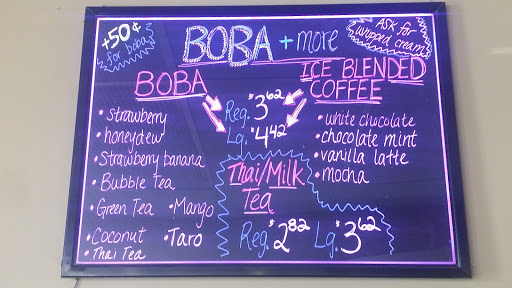 +50¢
for boba
BOBA + more
ASK for
whipped cream
BOBA
• strawberry
• honeydew
• Strawberry banana
• Bubble Tea
• Green Tea • Mango
• Coconut • Taro
• Thai Tea
Reg. $3.62
Lg. $4.42
ICE BLENDED
COFFEE
• white chocolate
• chocolate mint
• vanilla latte
• mocha
Thai/Milk
Tea
Reg. $2.82 Lg. $3.62